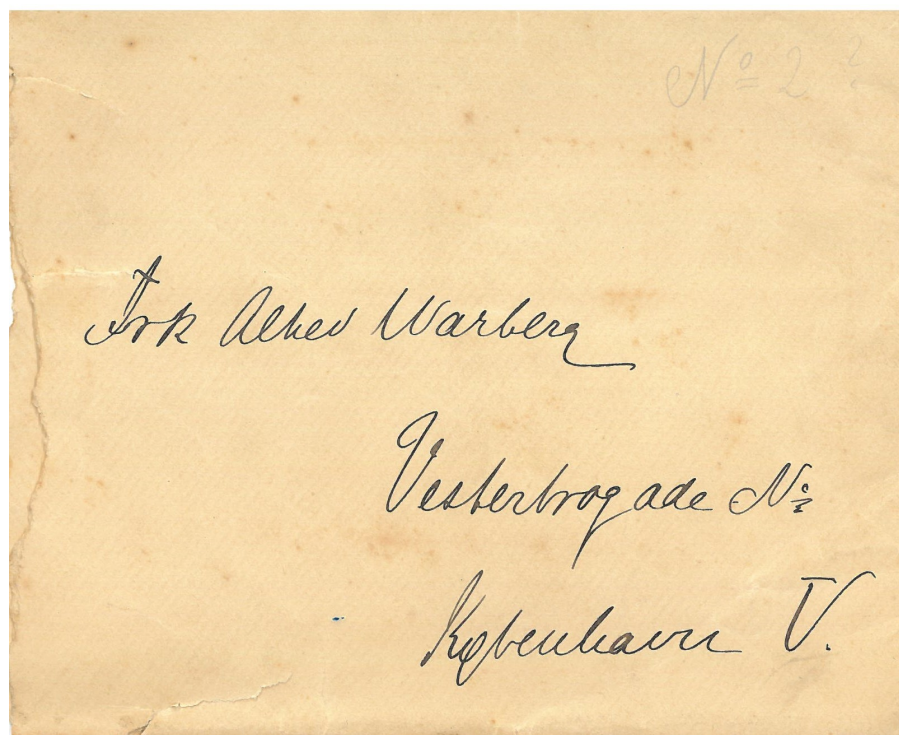 No 2 ?
Frk Alhed Warberg
Vesterbrogade No
København V.